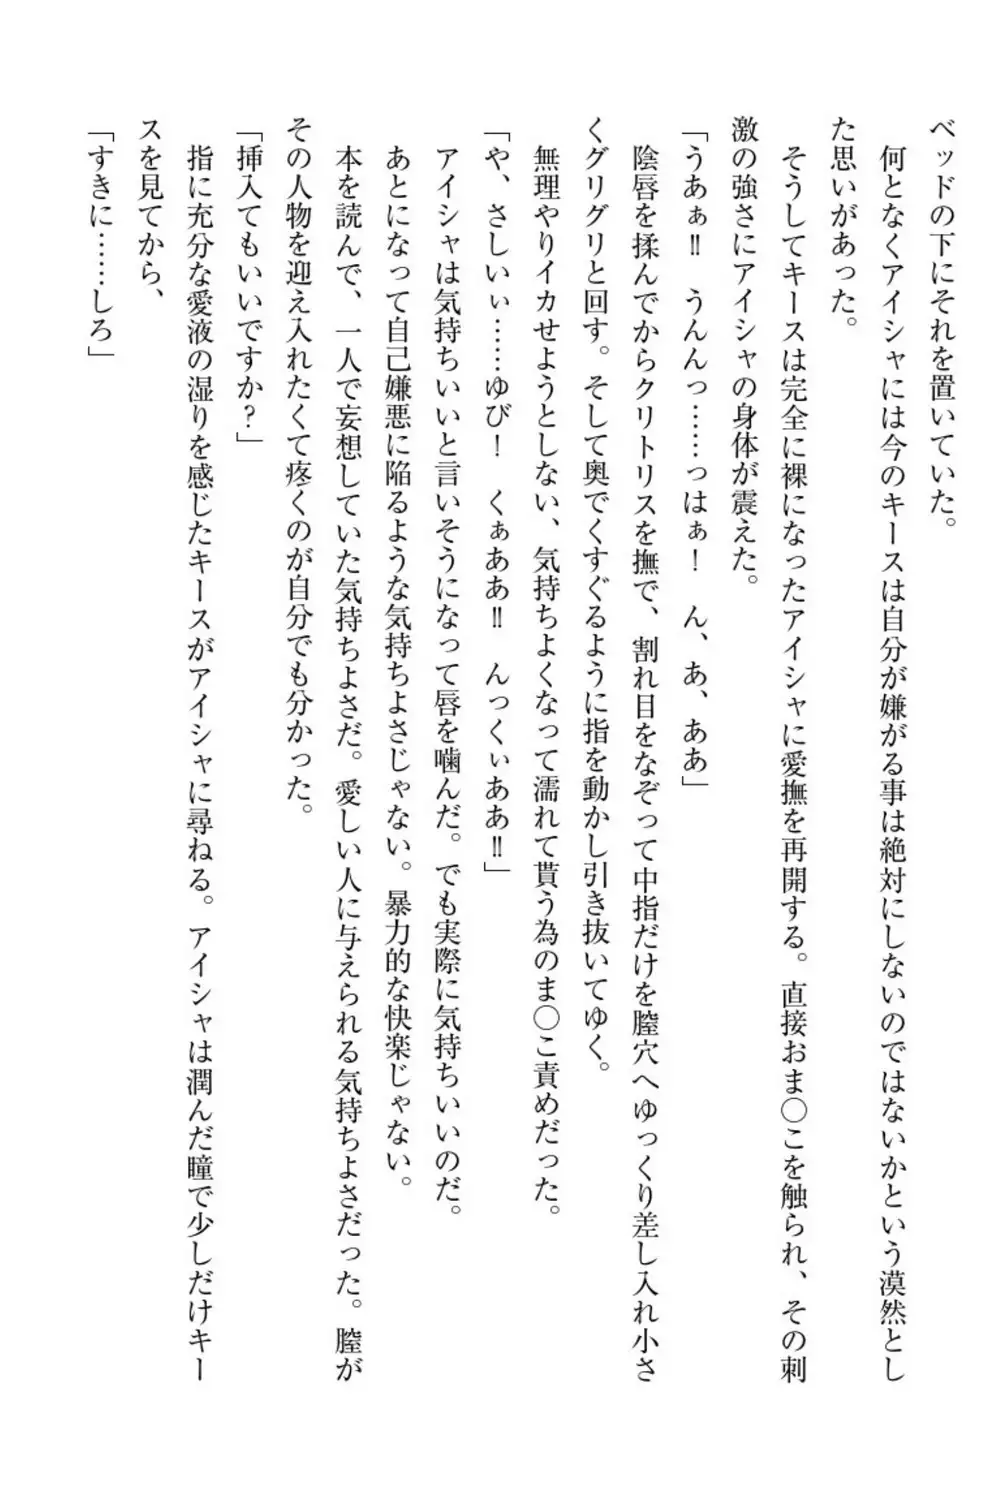 ベッドの下にそれを置いていた。
　何となくアイシャには今のキースは自分が嫌がる事は絶対にしないのではないかという漠然とし
た思いがあった。
　そうしてキースは完全に裸になったアイシャに愛撫を再開する。直接おま〇こを触られ、その刺
激の強さにアイシャの身体が震えた。
「うあぁ‼　うんんっ……っはぁ！　ん、あ、ああ」
　陰唇を揉んでからクリトリスを撫で、割れ目をなぞって中指だけを膣穴へゆっくり差し入れ小さ
くグリグリと回す。そして奥でくすぐるように指を動かし引き抜いてゆく。
　無理やりイカせようとしない、気持ちよくなって濡れて貰う為のま〇こ責めだった。
「や、さしいぃ……ゆび！　くぁああ‼　んっくぃああ‼」
　アイシャは気持ちいいと言いそうになって唇を噛んだ。でも実際に気持ちいいのだ。
　あとになって自己嫌悪に陥るような気持ちよさじゃない。暴力的な快楽じゃない。
　本を読んで、一人で妄想していた気持ちよさだ。愛しい人に与えられる気持ちよさだった。膣が
その人物を迎え入れたくて疼くのが自分でも分かった。
「挿入てもいいですか？」
　指に充分な愛液の湿りを感じたキースがアイシャに尋ねる。アイシャは潤んだ瞳で少しだけキー
スを見てから、
「すきに……しろ」